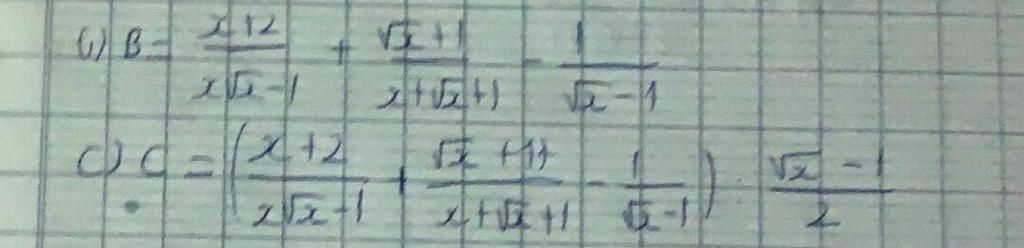 b) B = \frac{x+2}{x\sqrt{x}-1} + \frac{\sqrt{x}+1}{x+\sqrt{x}+1} - \frac{1}{\sqrt{x}-1}
c) C = \left(\frac{x+2}{x\sqrt{x}-1} + \frac{\sqrt{x}+1}{x+\sqrt{x}+1} - \frac{1}{\sqrt{x}-1}\right) \cdot \frac{\sqrt{x}-1}{2}